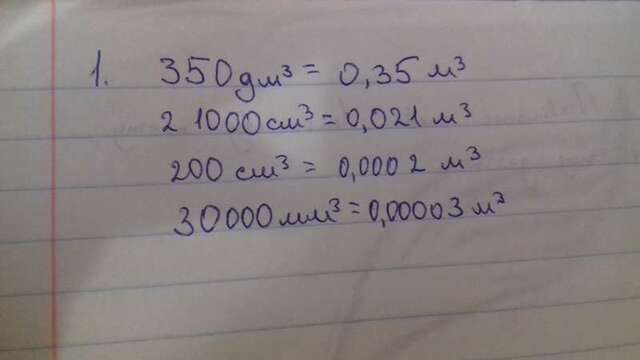 1. 350 дм³ = 0,35 м³
21000 см³ = 0,021 м³
200 см³ = 0,0002 м³
30000 мм³ = 0,00003 м³